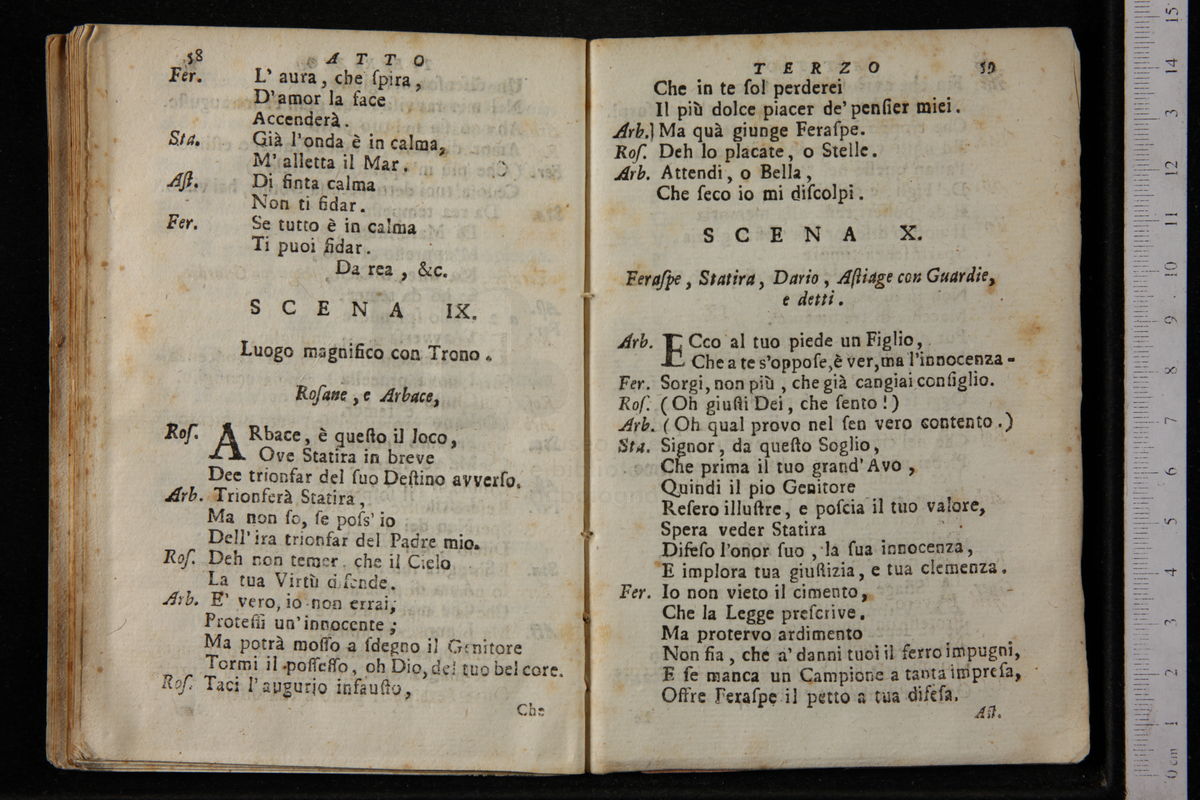 58
A T T O
Fer. L' aura, che ſpira,
D'amor la face
Accenderà.
Sta. Già l'onda è in calma,
M' alletta il Mar.
Aſt. Di finta calma
Non ti fidar.
Fer. Se tutto è in calma
Ti puoi fidar.
Da rea, &c.
S C E N A IX.
Luogo magnifico con Trono.
Roſane, e Arbace,
Roſ. ARbace, è queſto il loco,
Ove Statira in breve
Dee trionfar del ſuo Deſtino avverſo.
Arb. Trionferà Statira,
Ma non ſo, ſe poſs' io
Dell' ira trionfar del Padre mio.
Roſ. Deh non temer, che il Cielo
La tua Virtù difende.
Arb. E' vero, io non errai;
Proteſſi un'innocente;
Ma potrà moſſo a ſdegno il Genitore
Tormi il poſſeſſo, oh Dio, del tuo bel core.
Roſ. Taci l'augurio infauſto,
Che
T E R Z O
59
Che in te ſol perderei
Il più dolce piacer de' penſier miei.
Arb.] Ma quà giunge Feraſpe.
Roſ. Deh lo placate, o Stelle.
Arb. Attendi, o Bella,
Che ſeco io mi diſcolpi.
S C E N A X.
Feraſpe, Statira, Dario, Aſtiage con Guardie,
e detti.
Arb. ECco al tuo piede un Figlio,
Che a te s'oppoſe, è ver, ma l'innocenza -
Fer. Sorgi, non più, che già cangiai conſiglio.
Roſ. (Oh giuſti Dei, che ſento!)
Arb. (Oh qual provo nel ſen vero contento.)
Sta. Signor, da queſto Soglio,
Che prima il tuo grand' Avo,
Quindi il pio Genitore
Reſero illuſtre, e poſcia il tuo valore,
Spera veder Statira
Difeſo l'onor ſuo, la ſua innocenza,
E implora tua giuſtizia, e tua clemenza.
Fer. Io non vieto il cimento,
Che la Legge preſcrive.
Ma protervo ardimento
Non fia, che a' danni tuoi il ferro impugni,
E ſe manca un Campione a tanta impreſa,
Offre Feraſpe il petto a tua difeſa.
Aſt.
0 cm 1 2 3 4 5 6 7 8 9 10 11 12 13 14 15